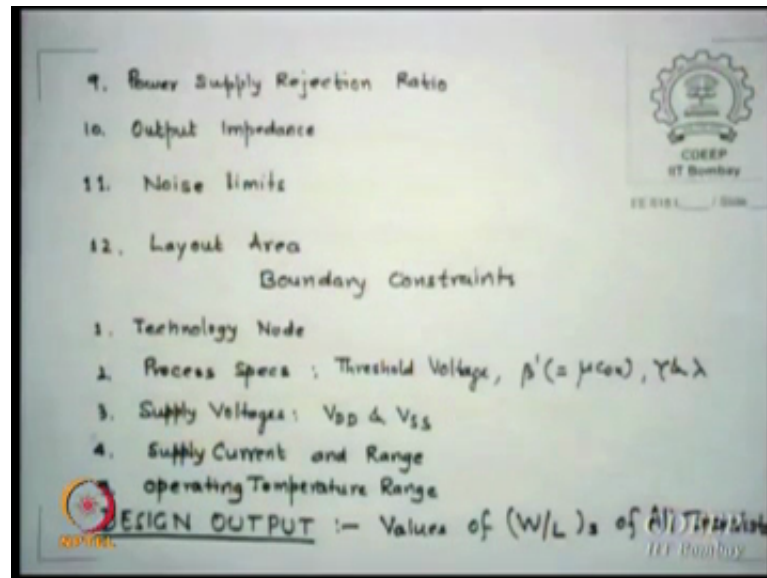 9. Power Supply Rejection Ratio
10. Output Impedance
11. Noise limits
12. Layout Area
Boundary Constraints
1. Technology Node
2. Process Specs : Threshold Voltage, β'(= μcox), γ & λ
3. Supply Voltages: VDD & VSS
4. Supply Current and Range
operating Temperature Range
DESIGN OUTPUT :- Values of (W/L)s of All Transistors
CDEEP
IIT Bombay
/ Slide
NPTEL
IIT Bombay